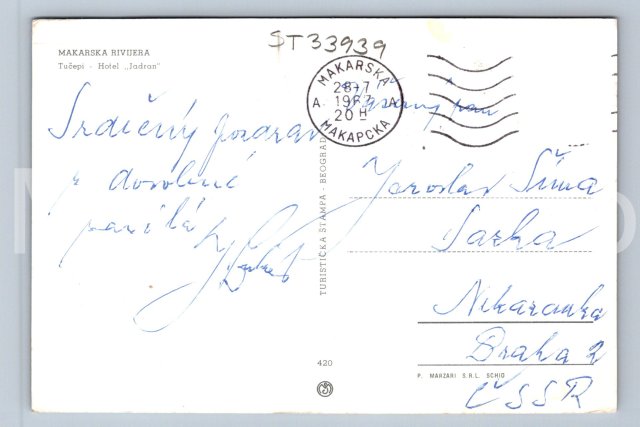 ST33939
MAKARSKA RIVIJERA
Tučepi - Hotel „Jadran"
MAKARSKA
28-7
A 1967 A
20 H
МАКАРСКА
Vážený pan
Srdečný pozdrav
z dovolené
Jaroslav Šíma
Praha 2
ČSSR
TURISTIČKA ŠTAMPA - BEOGRAD
420
P. MARZARI S.R.L. SCHIO